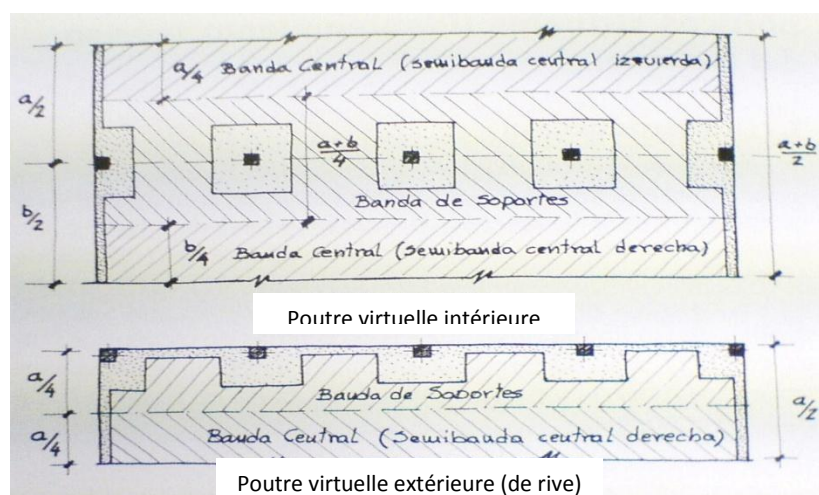 a/4 Banda Central (semibanda central izquierda)
a/2
a+b/4
a+b/2
Banda de Soportes
b/2
b/4 Banda Central (semibanda central derecha)
Poutre virtuelle intérieure
a/4
Banda de Soportes
a/2
a/4
Banda Central (semibanda central derecha)
Poutre virtuelle extérieure (de rive)